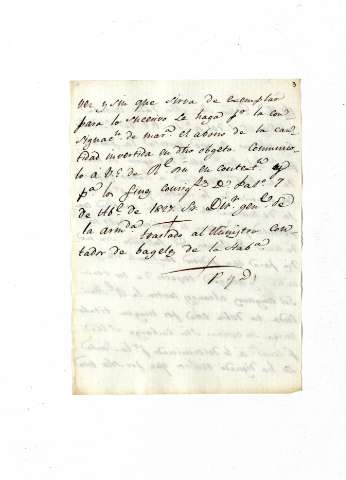 3
vez y sin que sirva de exemplar
para lo sucesivo se haga pr la con
signacn de marª el abono de la can
tidad invertida en dho objeto. Comunico
lo à V.E. de Rl orn en contextn
pª los fines consigtes D. Palº 7
de 8bre de 1807 Sr Dirr genl de
la armda
traslado al Ministro con
tador de bageles de la Habª
P. y D.